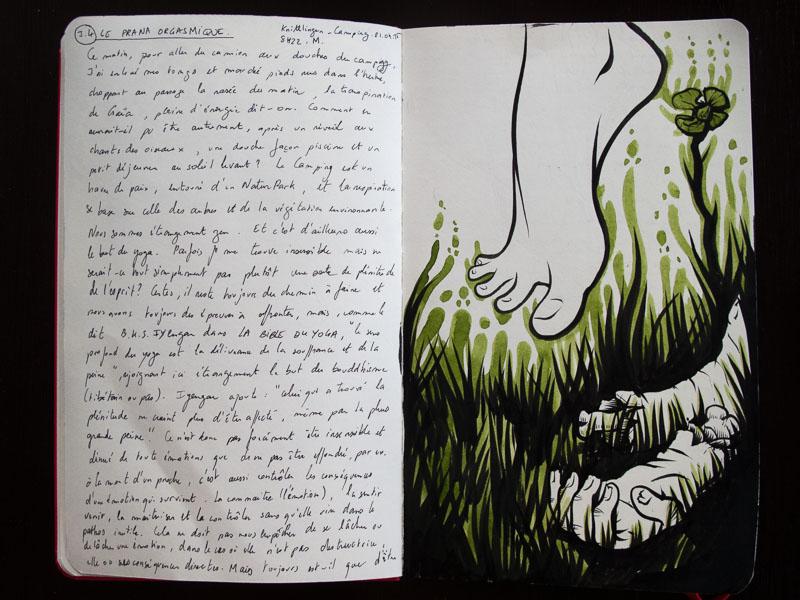 I.4 LE PRANA ORGASMIQUE.
Knittlingen - Camping, 01.09.
8H22. M.
Ce matin, pour aller du camion aux douches du camping,
J'ai enlevé mes tongs et marché pieds nus dans l'herbe,
choppant au passage la rosée du matin, la transpiration
de Gaïa, pleine d'énergie dit-on. Comment en
aurait-il pu être autrement, après un réveil aux
chants des oiseaux, une douche façon piscine et un
petit déjeuner au soleil levant? Le Camping est un
havre de paix, entouré d'un Natur Park, et la respiration
se base sur celle des arbres et de la végétation environnante.
Nous sommes étrangement zen. Et c'est d'ailleurs aussi
le but du yoga. Parfois je me trouve insensible mais ne
serait-ce tout simplement pas plutôt une sorte de plénitude
de l'esprit? Certes, il reste toujours du chemin à faire et
nous avons toujours des épreuves à affronter, mais, comme le
dit B.K.S. Iyengar dans LA BIBLE DU YOGA, "le sens
profond du yoga est la délivrance de la souffrance et de la
peine", rejoignant ici étrangement le but du bouddhisme
(tibétain ou pas). Iyengar ajoute: "celui qui a trouvé la
plénitude ne craint plus d'être affecté, même par la plus
grande peine". Ce n'est donc pas forcément être insensible et
dénué de toute émotions que de ne pas être effondré, par ex.
à la mort d'un proche, c'est aussi contrôler les conséquences
d'une émotion qui survient. La connaître (l'émotion), la sentir
venir, la maîtriser et la contrôler sans qu'elle vire dans le
pathos inutile. Cela ne doit pas nous empêcher de se lâcher ou
de lâcher une émotion, dans le cas où elle n'est pas destructrice,
elle ou ses conséquences directes. Mais toujours est-il que d'être